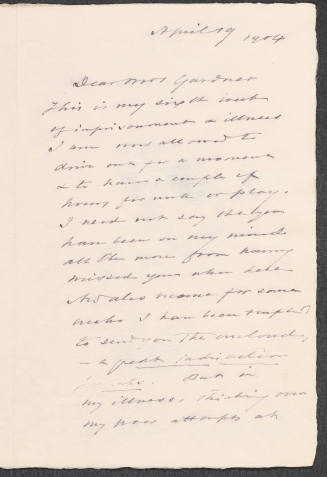 April 19 1904
Dear Mrs Gardner
This is my sixth week
of imprisonment & illness
I am now allowed to
drive out for a moment
& to have a couple of
hours for work or play.
I need not say that you
have been on my mind
all the more from having
missed you when here
And also because for some
weeks I have been tempted
to send you the enclosed,
— a
But in
my illness, thinking over
my poor attempts at